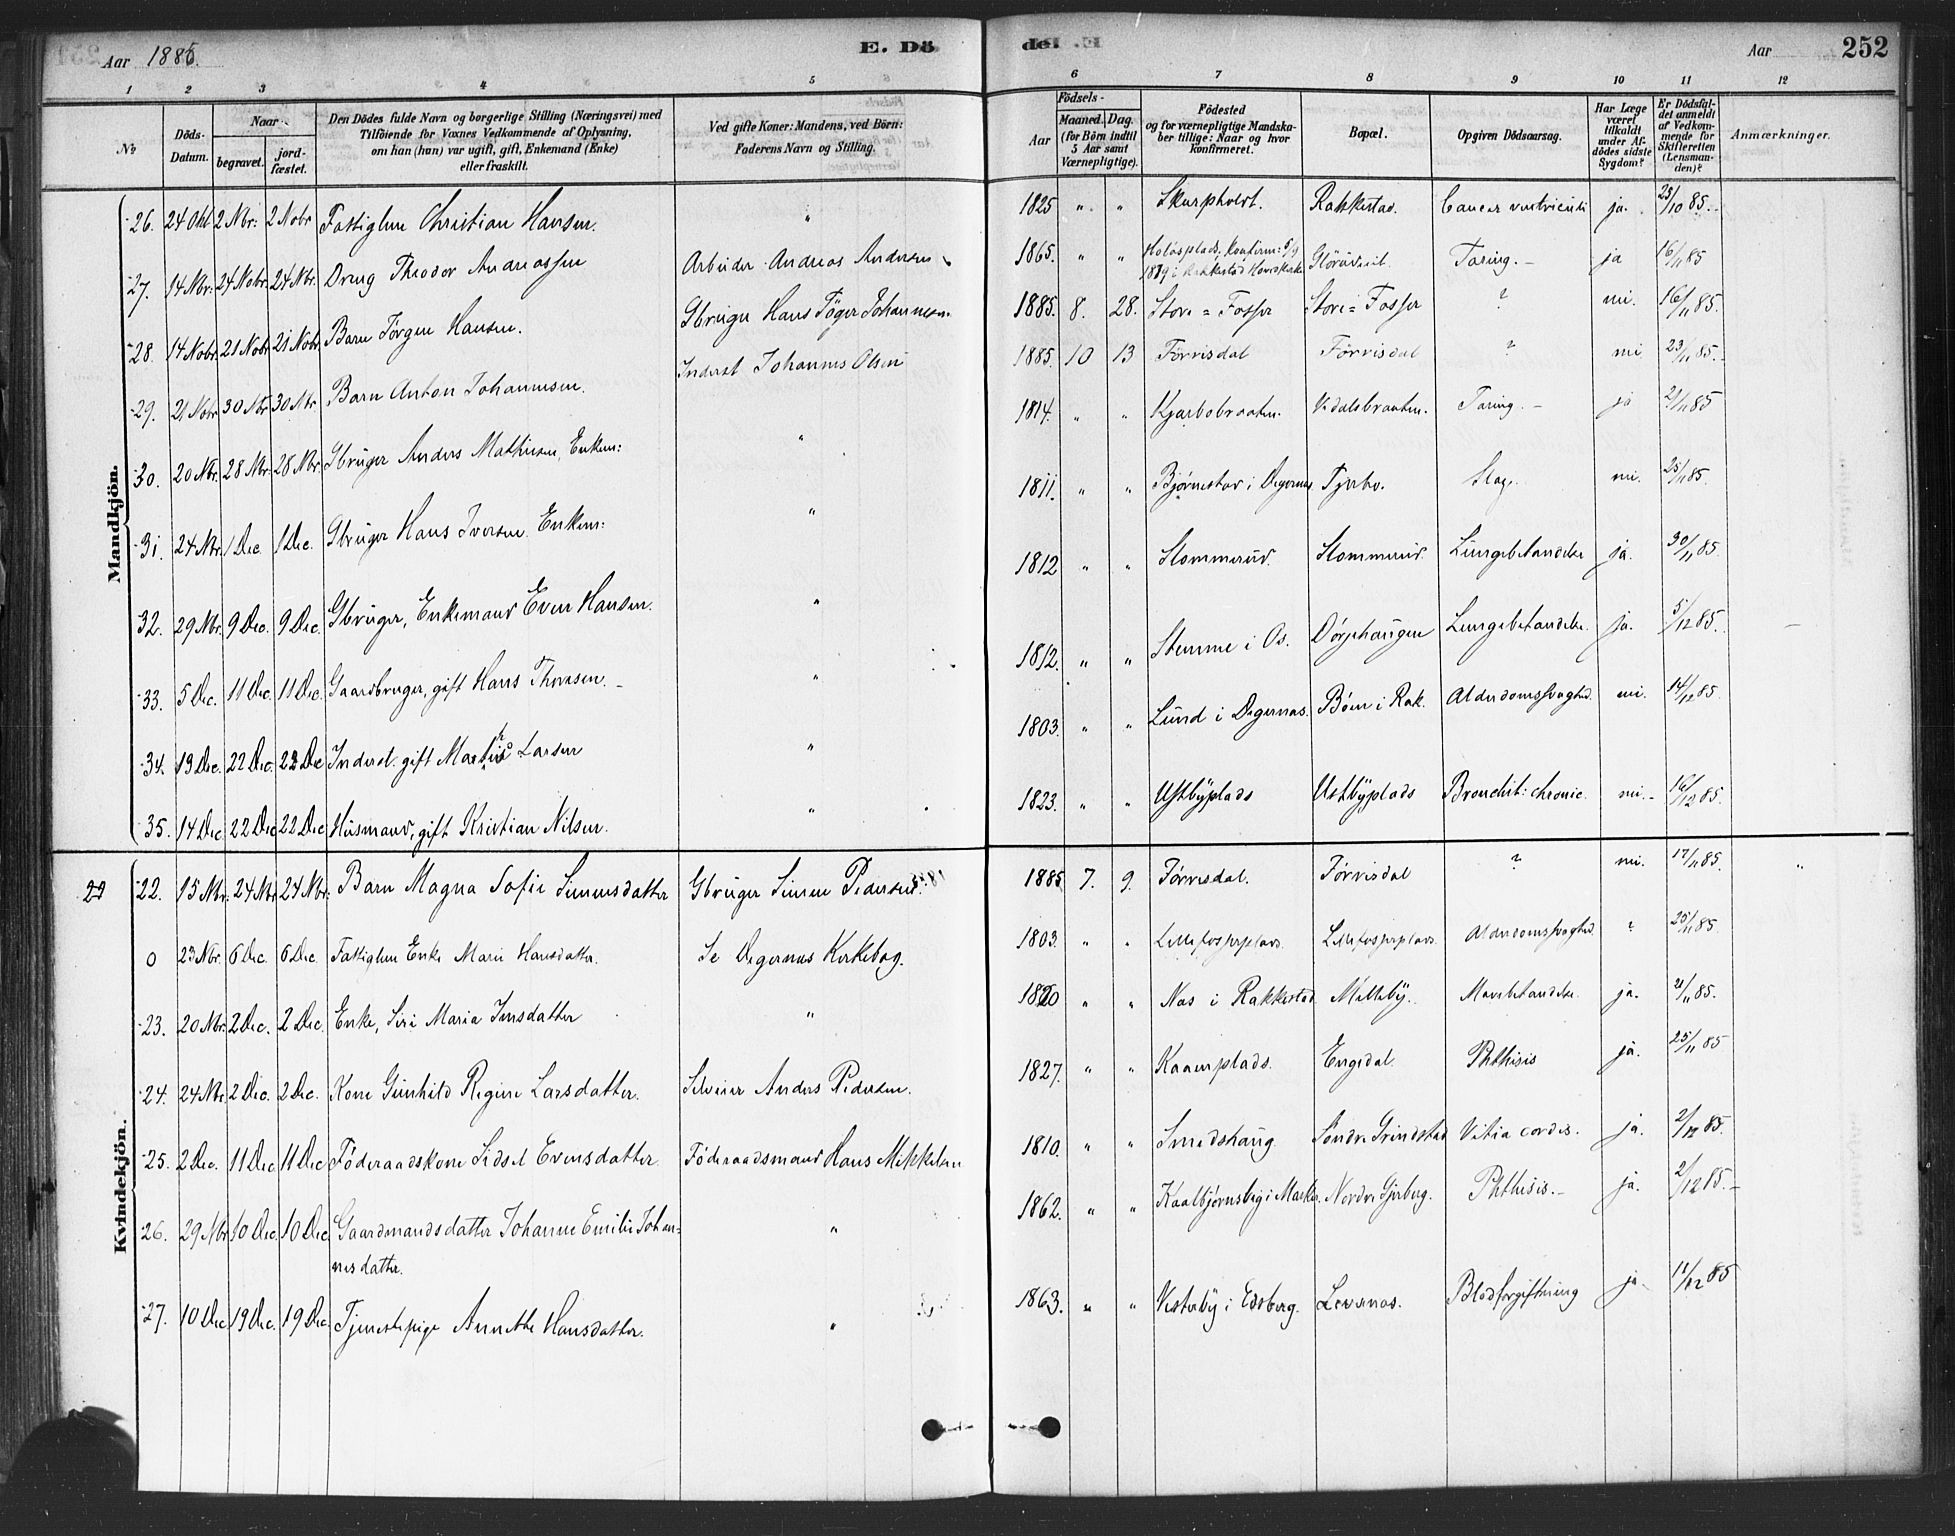 Aar 1885.
E. Dö
de. E.
Aar
252
1 2 3 4 5 6 7 8 9 10 11 12
No
Döds-Datum.
Naar
begravet.
jord-fæstet.
Den Dödes fulde Navn og borgerlige Stilling (Næringsvei) med
Tilföiende for Voxnes Vedkommende af Oplysning,
om han (hun) var ugift, gift, Enkemand (Enke)
eller fraskilt.
Ved gifte Koner: Mandens, ved Börn:
Faderens Navn og Stilling.
Födsels-
Aar
Maaned. Dag.
(for Börn indtil
5 Aar samt
Værnepligtige).
Födested
og for værnepligtige Mandska-
ber tillige: Naar og hvor
konfirmeret.
Bopæl.
Opgiven Dödsaarsag.
Har Læge
været
tilkaldt
under Af-
dödes sidste
Sygdom?
Er Dödsfal-
det anmeldt
af Vedkom-
mende for
Skifteretten
(Lensman-
den)?
Anmærkninger.
Mandkjön.
26. 24 Okt 2 Nbr: 2 Nobr Fattiglem Christian Hansen. " 1825 " " Rakkestad. Cancer ventriculi ja. 25/10 85.
27. 14 Nbr: 24 Nobr. 24 Nbr. Dreng Theodor Andreassen Arbeider Andreas Andersen 1865. " " Holøsplads, konfirm: 5/9
1879 i Rakkestad Hovedkirke Tæring. ja 16/11 85
28. 14 Nobr. 21 Nobr 21 Nobr. Barn Jørgen Hansen. Gbruger Hans Tøger Johannesen 1885. 8. 28. Store=Fosser Store=Fosser ? nei. 16/11 85.
29. 21 Nobr 30 Nbr 30 Nbr Barn Anton Johannesen. Inderst Johannes Olsen 1885. 10 13 Förrisdal Förrisdal ? nei 23/11 85.
30. 20 Nbr. 28 Nbr. 28 Nbr. Gbruger Anders Mathisen, Enkem: " 1814. " " Kjærbobraaten. Vedalsbraaten. Tæring. ja 21/11 85
31. 24 Nbr. 1 Dec. 1 Dec. Gbruger Hans Iversen Enkem: " 1811. " " Bjørnestad i Degernæs Tjerbo. Slag. nei. 25/11 85.
32. 29 Nbr. 9 Dec. 9 Dec. Gbruger, Enkemand Even Hansen. " 1812 " " Slommerud. Slommerud. Lungebetændelse ja. 30/11 85.
33. 5 Dec. 11 Dec. 11 Dec. Gaardbruger, gift Hans Thoresen. " 1812. " " Stemme i Os. Dørjehaugen Lungebetændelse. ja. 5/12 85.
34. 13 Dec. 22 Dec. 22 Dec Inderst. gift Larsen " 1803. " " Lund i Degernæs. Bøen i Rak. Alderdomssvaghed. nei. 14/12 85.
35. 14 Dec 22 Dec 22 Dec Husmand, gift Kristian Nilsen. " 1823. " " Ustbyplads Ustbyplads Bronchit: chronic. nei. 16/12 85.
Kvindekjön.
22 22. 15 Nbr. 24 Nbr 24 Nbr. Barn Magna Sofie Simensdatter Gbruger Simen Pedersen. 1885 7. 9. Førrisdal. Førrisdal ? nei. 17/11 85. "
0 23 Nbr. 6 Dec. 6 Dec. Fattiglem Enke Marie Hansdatter. Se Degernæs Kirkebog. 1803. " " Lillefosserplads. Lillefosserplads. Alderdomssvaghed. ? 25/11 85
23. 20 Nbr. 2 Dec. 2 Dec. Enke, Siri Maria Jensdatter " 1820 " " Næs i Rakkestad. Melleby. Mavebetændelse. ja. 21/11 85.
24. 24 Nbr. 2 Dec. 2 Dec. Kone Gunhild Regine Larsdatter. Selveier Anders Pedersen. 1827. " " Kaaenplads. Engedal. Phthisis ja. 25/11 85
25. 2 Dec. 11 Dec 11 Dec Föderaadskone Sidsel Evensdatter Föderaadsmand Hans Mikkelsen 1810. " " Smedshaug. Søndre Grindstad Vitia cordis. ja. 2/12 85.
26. 29 Nbr 10 Dec. 10 Dec. Gaardmandsdatter Johanne Emilie Johan-
nesdatter. " 1862. " " Kaalbjørnsbeg i Marker. Nordre Gjerberg. Phthisis. ja. 2/12 85.
27. 10 Dec 19 Dec. 19 Dec. Tjenestepige Annette Hansdatter. " 1863. " " Vesteby i Edsberg. Levernæs. Blodforgiftning ja 11/12 85